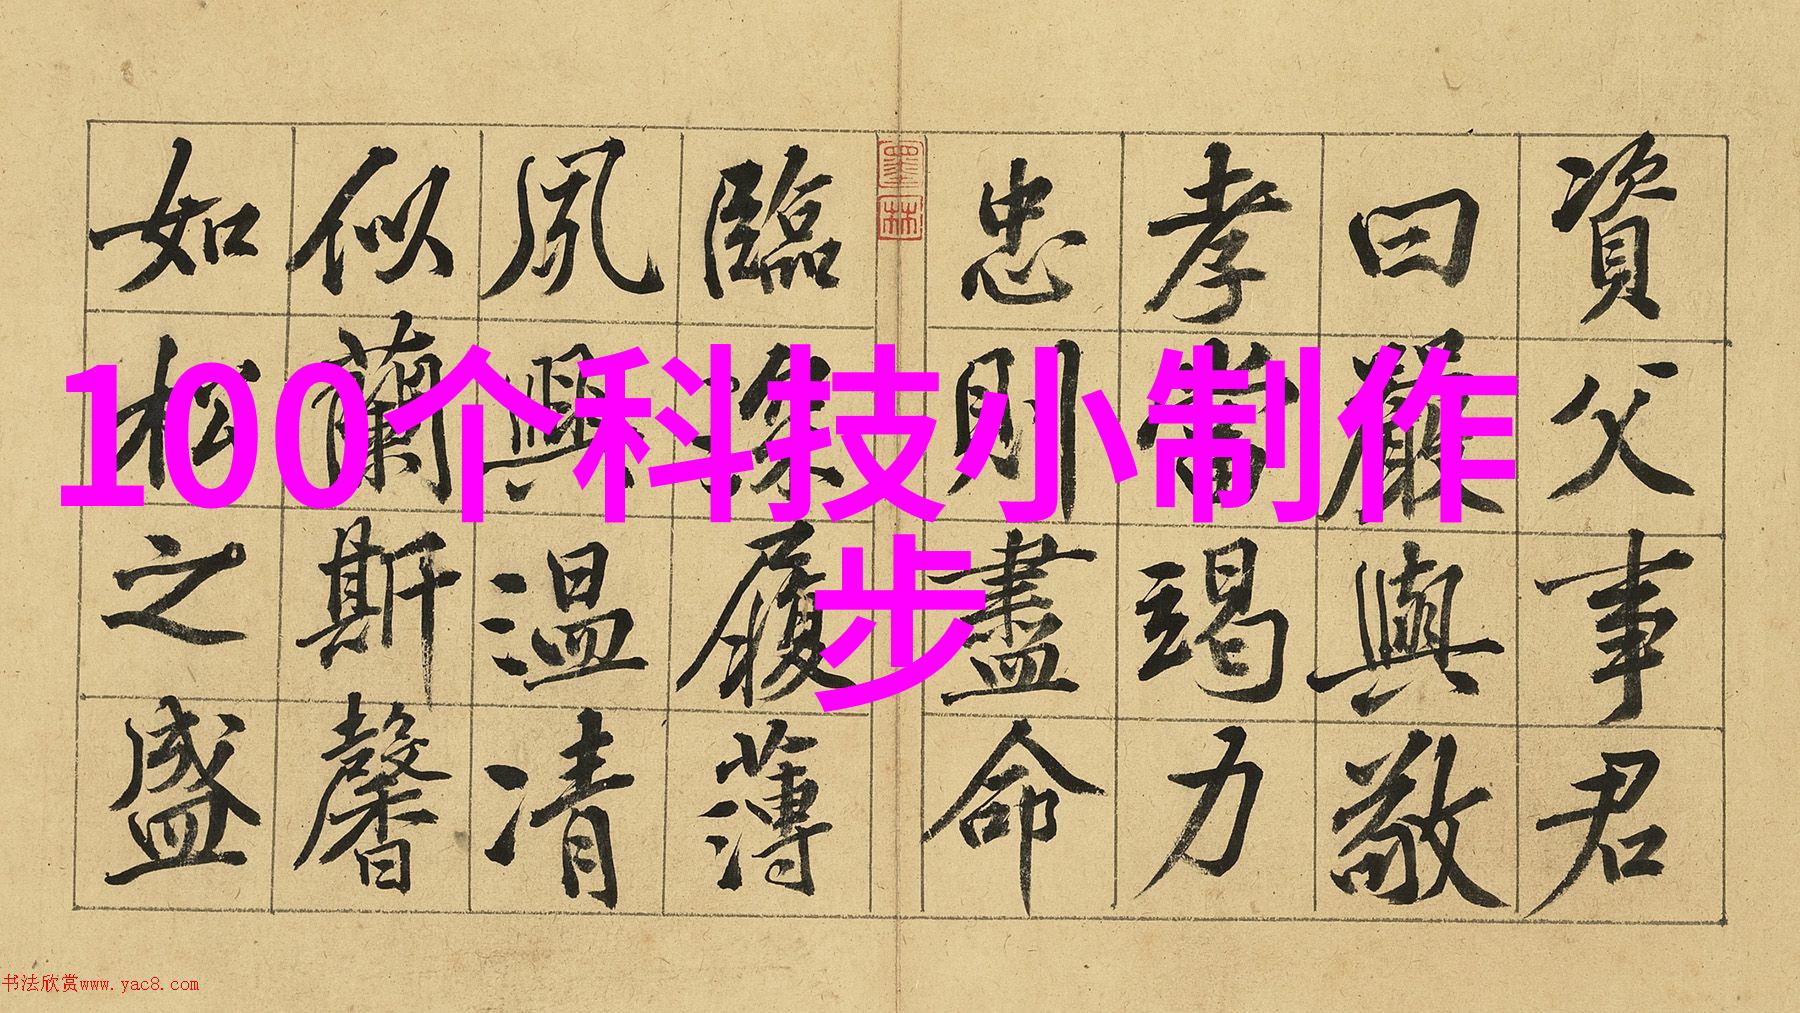 資父事君
曰嚴與敬
孝當竭力
忠則盡命
臨深履薄
夙興溫凊
似蘭斯馨
如松之盛
墨林
100个科技小制作
步
书法欣赏www.yac8.com